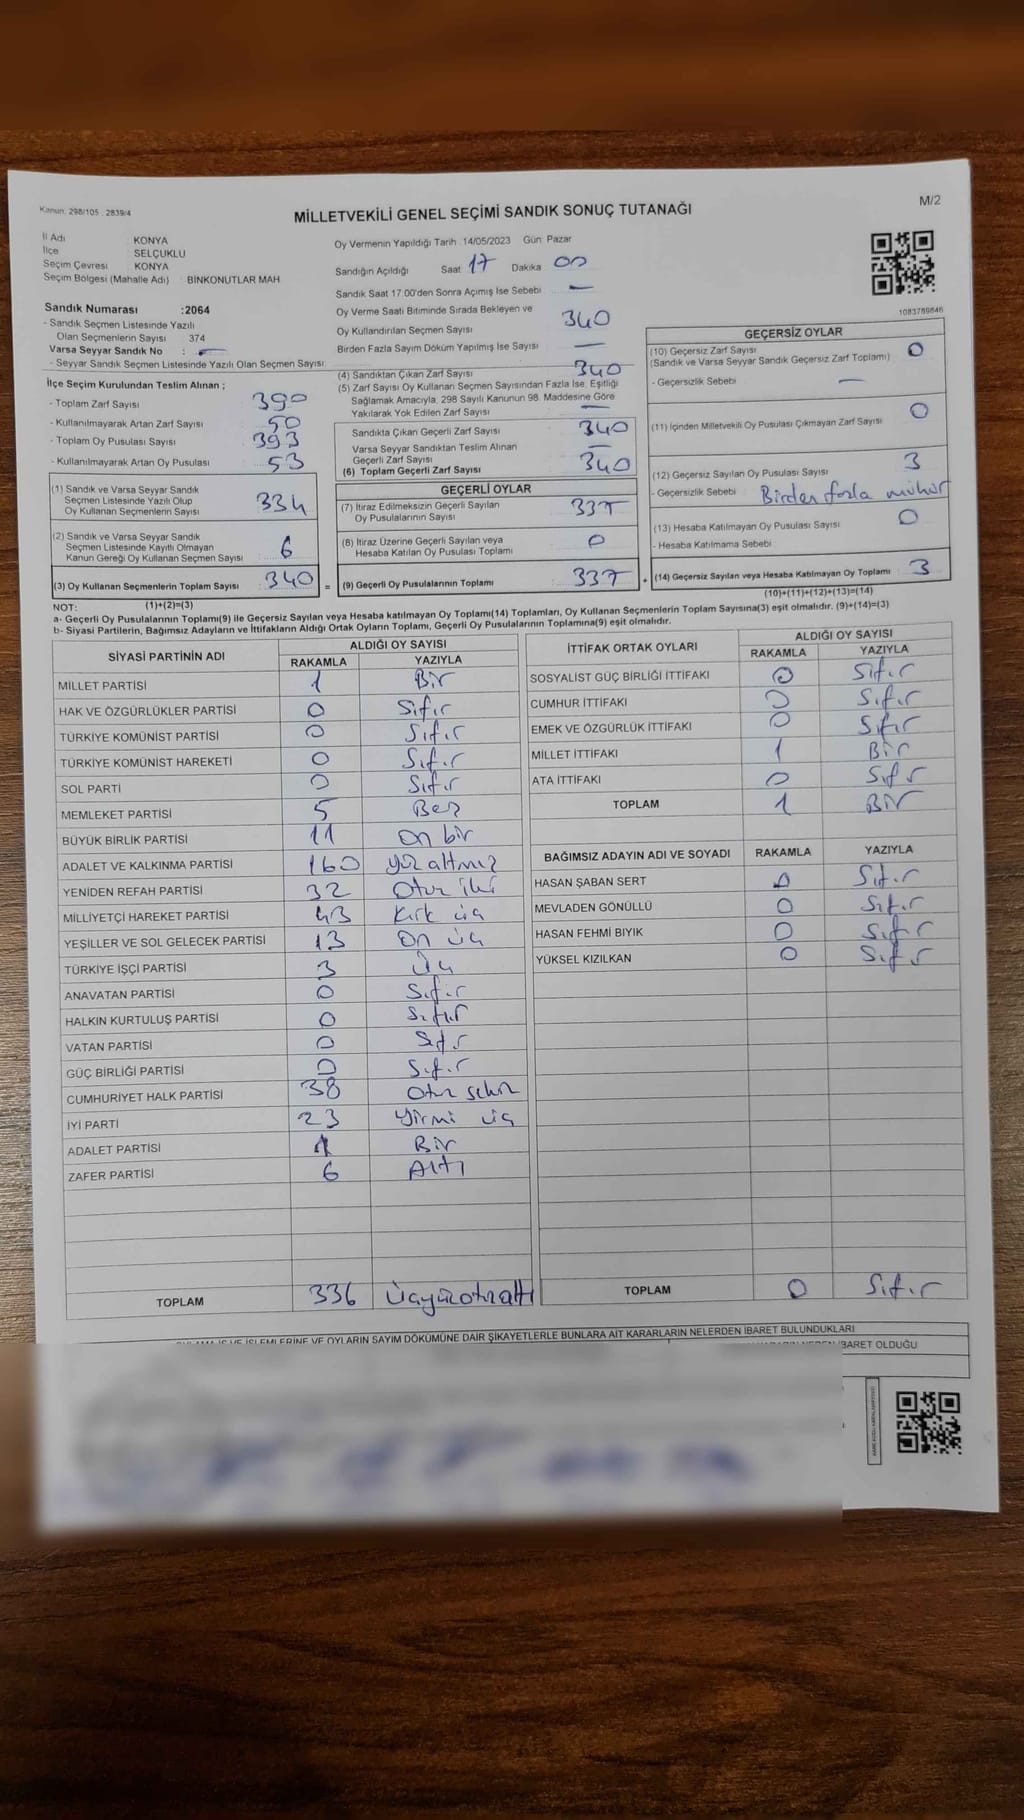 Kanun: 298/105 . 2839/4
MİLLETVEKİLİ GENEL SEÇİMİ SANDIK SONUÇ TUTANAĞI
M/2
İl Adı : KONYA
İlçe : SELÇUKLU
Seçim Çevresi : KONYA
Seçim Bölgesi (Mahalle Adı) : BİNKONUTLAR MAH
Sandık Numarası :2064
- Sandık Seçmen Listesinde Yazılı
Olan Seçmenlerin Sayısı 374
Varsa Seyyar Sandık No : —
- Seyyar Sandık Seçmen Listesinde Yazılı Olan Seçmen Sayısı:
İlçe Seçim Kurulundan Teslim Alınan ;
- Toplam Zarf Sayısı 390
- Kullanılmayarak Artan Zarf Sayısı 50
- Toplam Oy Pusulası Sayısı 393
- Kullanılmayarak Artan Oy Pusulası 53
(1) Sandık ve Varsa Seyyar Sandık
Seçmen Listesinde Yazılı Olup
Oy Kullanan Seçmenlerin Sayısı 334
(2) Sandık ve Varsa Seyyar Sandık
Seçmen Listesinde Kayıtlı Olmayan
Kanun Gereği Oy Kullanan Seçmen Sayısı 6
(3) Oy Kullanan Seçmenlerin Toplam Sayısı 340 =
(1)+(2)=(3)
Oy Vermenin Yapıldığı Tarih 14/05/2023 Gün: Pazar
Sandığın Açıldığı Saat 17 Dakika 00
Sandık Saat 17.00'den Sonra Açımış İse Sebebi —
Oy Verme Saati Bitiminde Sırada Bekleyen ve
Oy Kullandırılan Seçmen Sayısı 340
Birden Fazla Sayım Döküm Yapılmış İse Sayısı —
(4) Sandıktan Çıkan Zarf Sayısı 340
(5) Zarf Sayısı Oy Kullanan Seçmen Sayısından Fazla İse, Eşitliği
Sağlamak Amacıyla, 298 Sayılı Kanunun 98. Maddesine Göre
Yakılarak Yok Edilen Zarf Sayısı —
Sandıkta Çıkan Geçerli Zarf Sayısı 340
Varsa Seyyar Sandıktan Teslim Alınan
Geçerli Zarf Sayısı —
(6) Toplam Geçerli Zarf Sayısı 340
GEÇERLİ OYLAR
(7) İtiraz Edilmeksizin Geçerli Sayılan
Oy Pusulalarının Sayısı 337
(8) İtiraz Üzerine Geçerli Sayılan veya
Hesaba Katılan Oy Pusulası Toplamı 0
(9) Geçerli Oy Pusulalarının Toplamı 337 +
1083789846
GEÇERSİZ OYLAR
(10) Geçersiz Zarf Sayısı
(Sandık ve Varsa Seyyar Sandık Geçersiz Zarf Toplamı) 0
- Geçersizlik Sebebi —
(11) İçinden Milletvekili Oy Pusulası Çıkmayan Zarf Sayısı 0
(12) Geçersiz Sayılan Oy Pusulası Sayısı 3
- Geçersizlik Sebebi Birden fazla mühür
(13) Hesaba Katılmayan Oy Pusulası Sayısı 0
- Hesaba Katılmama Sebebi
(14) Geçersiz Sayılan veya Hesaba Katılmayan Oy Toplamı 3
(10)+(11)+(12)+(13)=(14)
NOT:
a- Geçerli Oy Pusulalarının Toplamı(9) ile Geçersiz Sayılan veya Hesaba katılmayan Oy Toplamı(14) Toplamları, Oy Kullanan Seçmenlerin Toplam Sayısına(3) eşit olmalıdır. (9)+(14)=(3)
b- Siyasi Partilerin, Bağımsız Adayların ve İttifakların Aldığı Ortak Oyların Toplamı, Geçerli Oy Pusulalarının Toplamına(9) eşit olmalıdır.
SİYASİ PARTİNİN ADI ALDIĞI OY SAYISI
RAKAMLA YAZIYLA
MİLLET PARTİSİ 1 Bir
HAK VE ÖZGÜRLÜKLER PARTİSİ 0 Sıfır
TÜRKİYE KOMÜNİST PARTİSİ 0 Sıfır
TÜRKİYE KOMÜNİST HAREKETİ 0 Sıfır
SOL PARTİ 0 Sıfır
MEMLEKET PARTİSİ 5 Beş
BÜYÜK BİRLİK PARTİSİ 11 On bir
ADALET VE KALKINMA PARTİSİ 160 yüz altmış
YENİDEN REFAH PARTİSİ 32 Otuz iki
MİLLİYETÇİ HAREKET PARTİSİ 43 Kırk üç
YEŞİLLER VE SOL GELECEK PARTİSİ 13 On üç
TÜRKİYE İŞÇİ PARTİSİ 3 Üç
ANAVATAN PARTİSİ 0 Sıfır
HALKIN KURTULUŞ PARTİSİ 0 Sıfır
VATAN PARTİSİ 0 Sıfır
GÜÇ BİRLİĞİ PARTİSİ 0 Sıfır
CUMHURİYET HALK PARTİSİ 38 Otuz sekiz
İYİ PARTİ 23 Yirmi üç
ADALET PARTİSİ 1 Bir
ZAFER PARTİSİ 6 Altı
TOPLAM 336 Üçyüzotuzaltı
İTTİFAK ORTAK OYLARI ALDIĞI OY SAYISI
RAKAMLA YAZIYLA
SOSYALİST GÜÇ BİRLİĞİ İTTİFAKI 0 Sıfır
CUMHUR İTTİFAKI 0 Sıfır
EMEK VE ÖZGÜRLÜK İTTİFAKI 0 Sıfır
MİLLET İTTİFAKI 1 Bir
ATA İTTİFAKI 0 Sıfır
TOPLAM 1 Bir
BAĞIMSIZ ADAYIN ADI VE SOYADI RAKAMLA YAZIYLA
HASAN ŞABAN SERT 0 Sıfır
MEVLADEN GÖNÜLLÜ 0 Sıfır
HASAN FEHMİ BIYIK 0 Sıfır
YÜKSEL KIZILKAN 0 Sıfır
TOPLAM 0 Sıfır
VE İŞLEMLERİNE VE OYLARIN SAYIM DÖKÜMÜNE DAİR ŞİKAYETLERLE BUNLARA AİT KARARLARIN NELERDEN İBARET BULUNDUKLARI
İBARET OLDUĞU